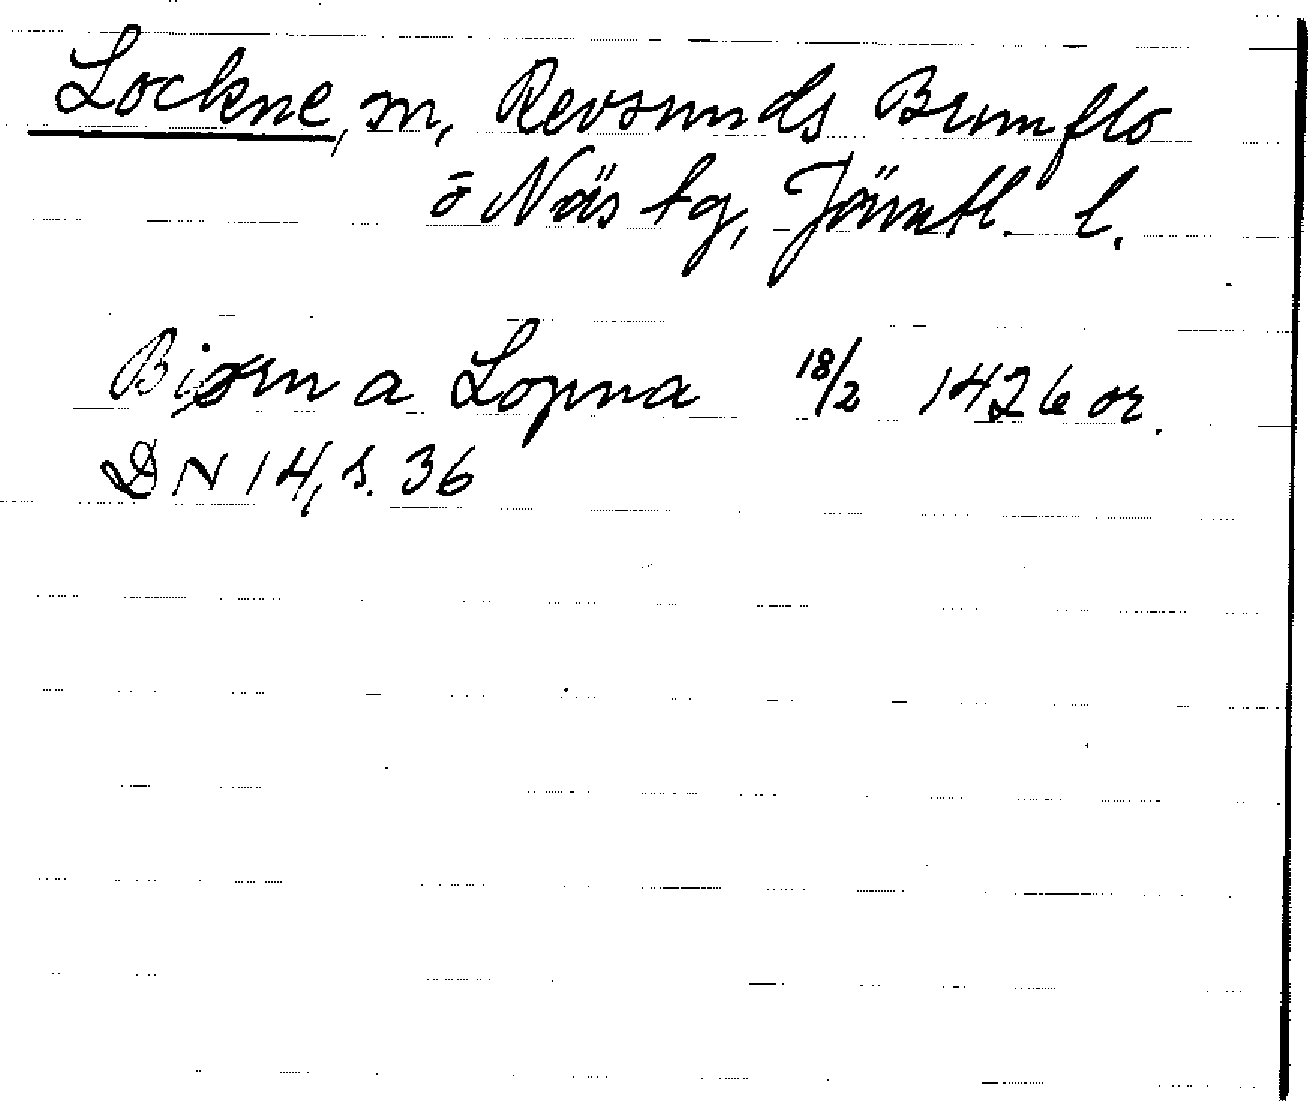 Lockne, sn, Revsunds Brunflo
o Näs tg, Jämtl. l.
Biørn a Lopna 18/2 1426 or.
DN 14, s. 36